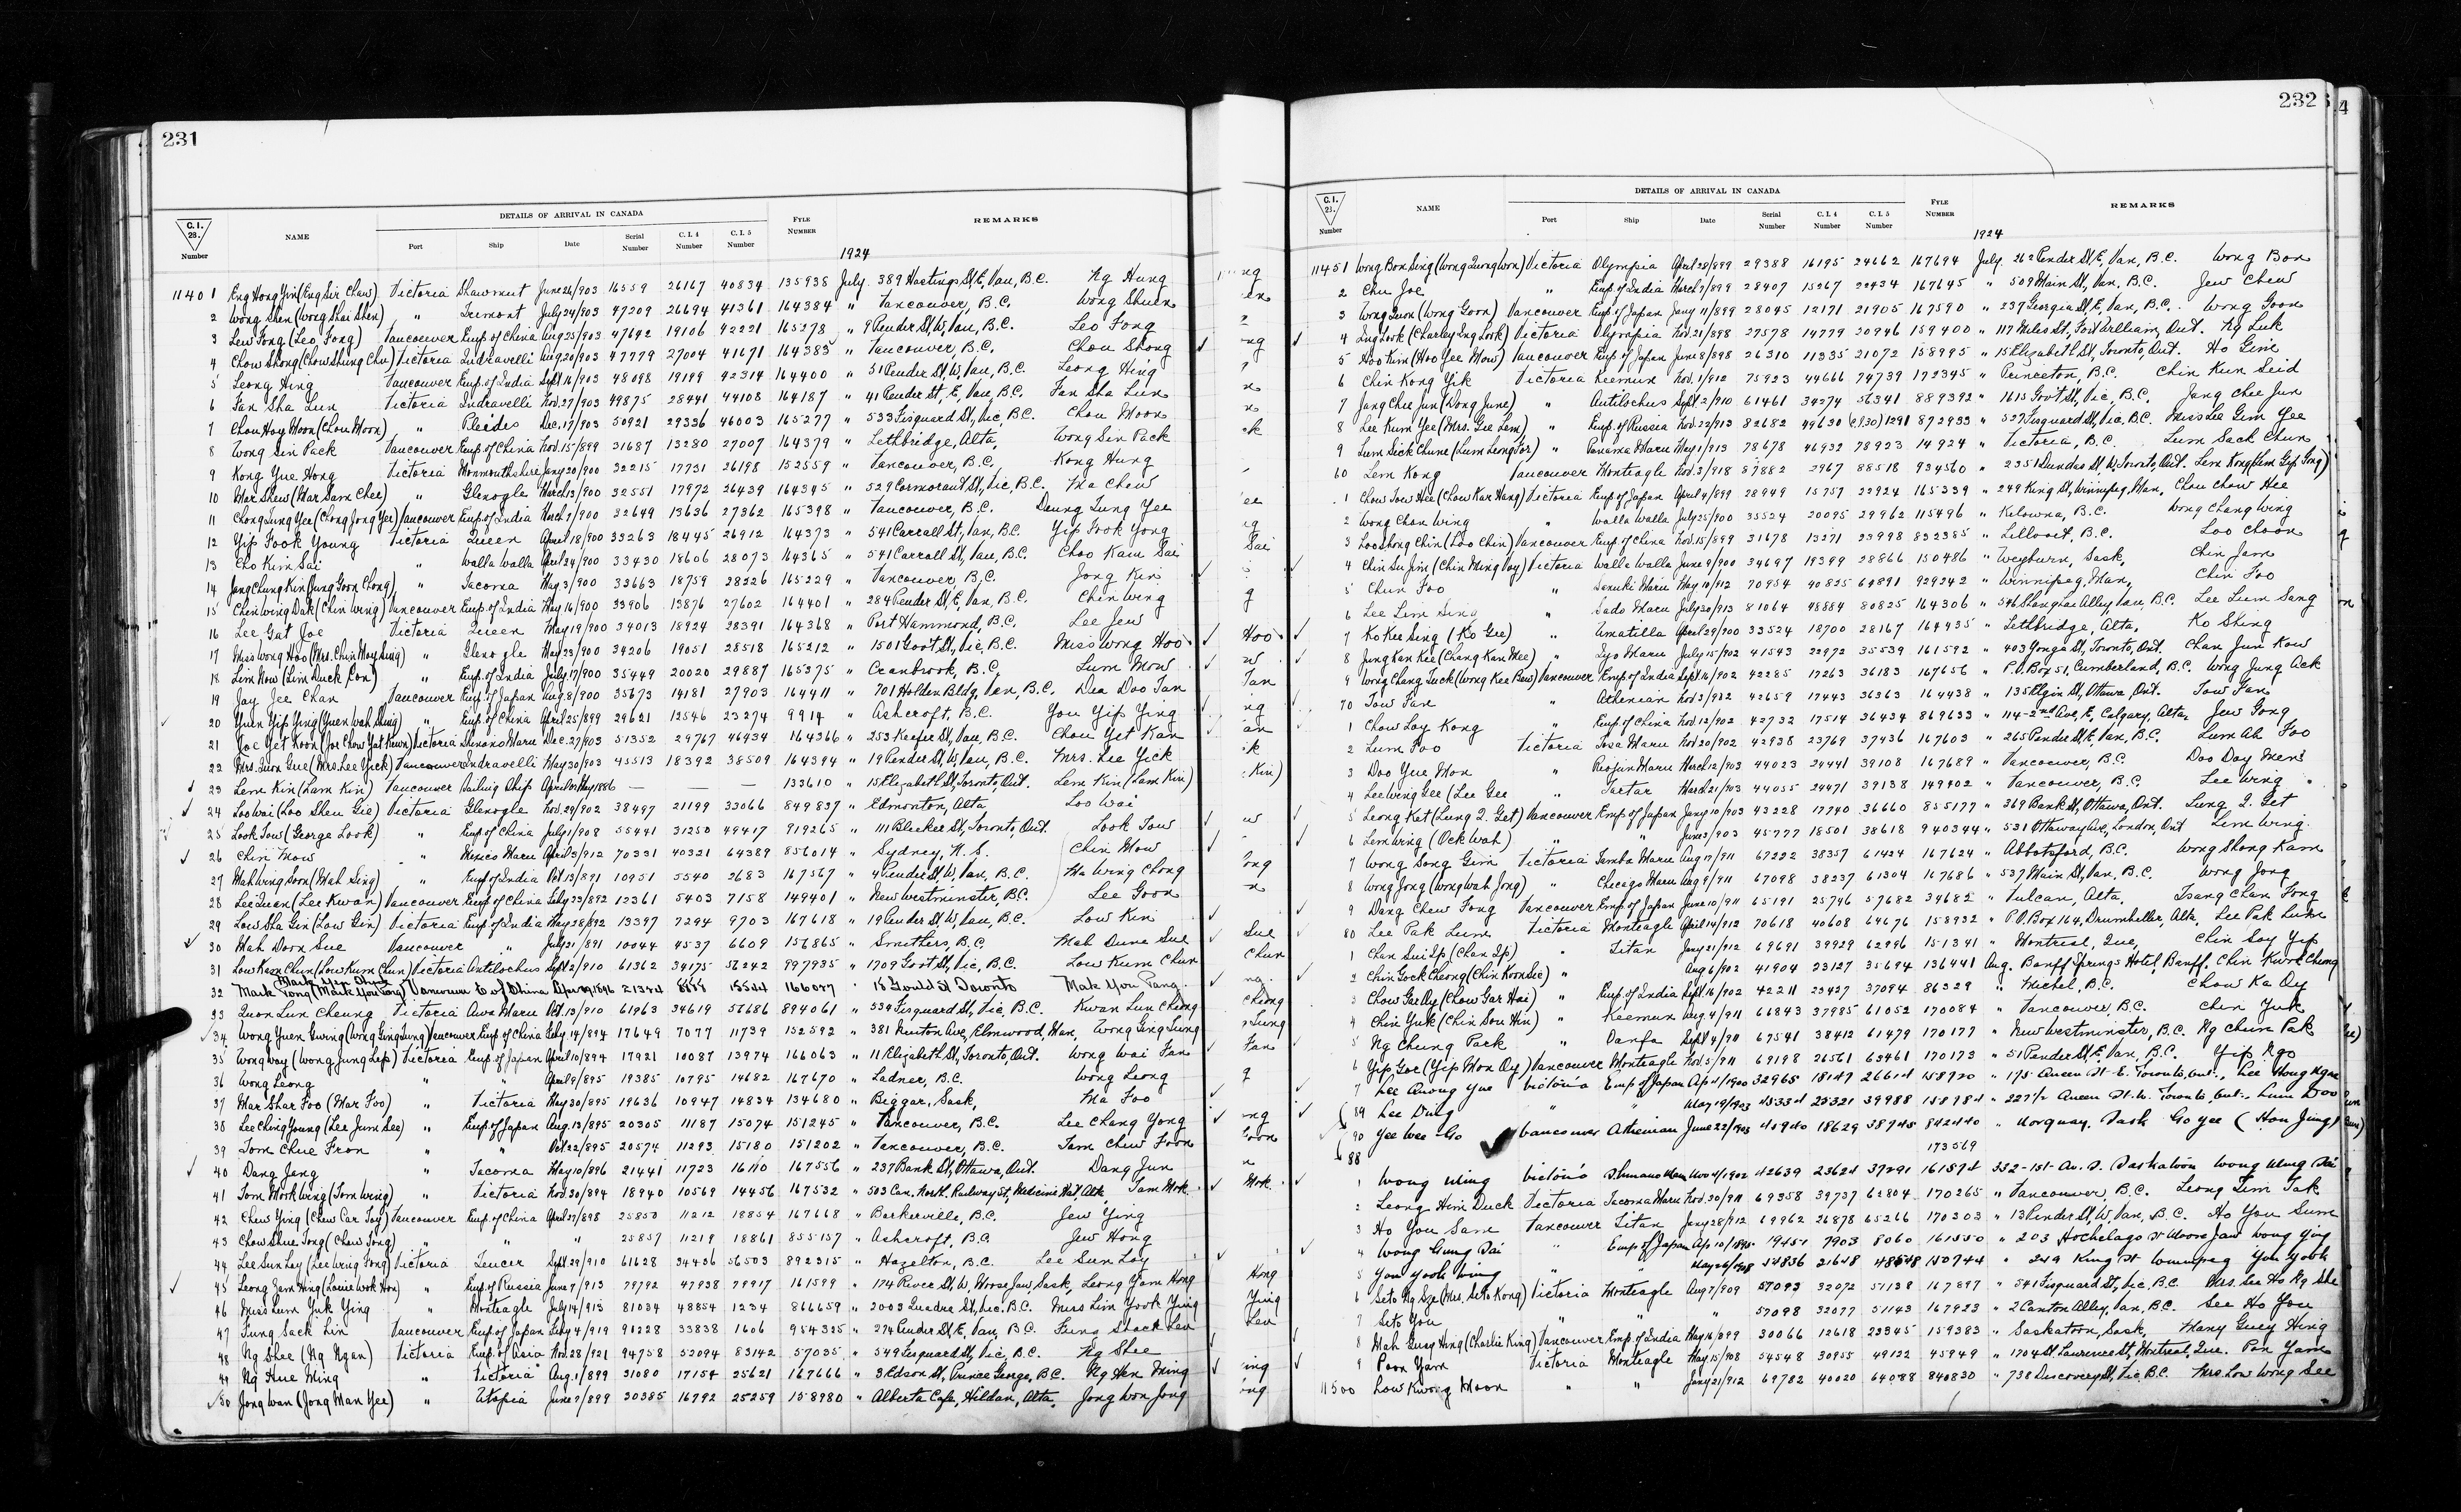 231
DETAILS OF ARRIVAL IN CANADA
C.I. 28. Number NAME Port Ship Date Serial Number C.I.4 Number C.I.5 Number FYLE NUMBER REMARKS
1924
11401 Eng Hong Yin (Eng Sir Chaw) Victoria Shawmut June 26/903 16559 26167 40834 135935 July 389 Hastings St, E, Van, B.C. Ng Hung
2 Wong Shen (Wong Shai Shen) " Tremont July 24/903 47209 26694 41361 164384 " Vancouver, B.C. Wong Shuen
3 Lew Fong (Leo Fong) Vancouver Emp. of China Aug 25/903 47692 19106 42221 165278 " 9 Pender St, W, Van, B.C. Leo Fong
4 Chow Shong (Chow Shung Chu) Victoria Indravelli Aug 20/903 47779 27004 41671 164385 " Vancouver, B.C. Chou Shong
5 Leong Hing Vancouver Emp. of India Sept 16/903 48098 19199 42314 164400 " 51 Pender St, W, Van, B.C. Leong Hing
6 Fan Sha Lun Victoria Indravelli Nov. 27/903 49875 28441 44108 164187 " 41 Pender St, E, Van, B.C. Fan Sha Lun
7 Chou Hoy Moon (Chou Moon) " Pleides Dec. 17/903 50921 29336 46003 165277 " 533 Fisguard St, Vic, B.C. Chou Moon
8 Wong Sin Pack Vancouver Emp. of China Nov. 15/899 31687 13280 27007 164379 " Lethbridge, Alta, Wong Sin Pack
9 Kong Yue Hong Victoria Monmouthshire Jany 20/900 32215 17731 26198 152559 " Vancouver, B.C. Kong Hung
10 Mar Shew (Mar Sam Chee) " Glenogle March 13/900 32551 17972 26439 164345 " 529 Cormorant St, Vic, B.C. Ma Chew
11 Chong Lung Yee (Chong Jong Yee) Vancouver Emp. of India March 7/900 32649 13636 27362 165398 " Vancouver, B.C. Deung Lung Yee
12 Yip Fook Young Victoria Queen April 18/900 33263 18445 26912 164373 " 541 Carrall St, Van, B.C. Yip Fook Yong
13 Cho Kim Sai " Walla Walla April 24/900 33430 18606 28073 164365 " 541 Carrall St, Van, B.C. Choo Kam Sai
14 Jang Chung Kin (Jung Goon Chong) " Tacoma May 3/900 33663 18759 28226 165229 " Vancouver, B.C. Jong Kin
15 Chin Wing Dak (Chin Wing) Vancouver Emp. of India May 16/900 33906 13876 27602 164401 " 284 Pender St, E, Van, B.C. Chin Wing
16 Lee Gat Joe Victoria Queen May 19/900 34013 18924 28391 164368 " Port Hammond, B.C. Lee Jew
17 Miss Wong Hoo (Mrs. Chin Moy Sing) " Glenogle May 23/900 34206 19051 28518 165212 " 1501 Gov't St, Vic, B.C. Miss Wong Hoo
18 Lim How (Lim Duck Pon) " Emp. of India July 17/900 35449 20020 29887 165375 " Cranbrook, B.C. Lum Mow
19 Jay Jee Chan Vancouver Emp. of Japan Aug. 8/900 35673 14181 27903 164411 " 701 Holden Bldg, Van, B.C. Dea Doo Tan
20 Yuen Yip Ying (Yuen Wah Shing) " Emp. of China April 25/899 29621 12546 23274 9914 " Ashcroft, B.C. You Yip Ying
21 Joe Yet Koon (Joe Chow Yat Kuwn) Victoria Shinano Maru Dec. 27/903 51352 29767 46934 164366 " 253 Keefer St, Van, B.C. Chou Yet Kan
22 Mrs. Quon Gue (Mrs. Lee Yick) Vancouver Indravelli May 30/903 45513 18392 38509 164394 " 19 Pender St, W, Van, B.C. Mrs. Lee Yick
23 Lem Kin (Lam Kin) Vancouver Sailing Ship April or May 1886 — — — 133610 " 15 Elizabeth St, Toronto, Ont. Lem Kin (Lam Kin)
24 Loo Wai (Loo Shew Gie) Victoria Glenogle Nov. 29/902 38497 21199 33066 849837 " Edmonton, Alta Loo Wai
25 Look Tow (George Look) " Emp. of China July 1/908 55441 31250 49417 919265 " 111 Bleeker St, Toronto, Ont. Look Tow
26 Chin Mow " Mexico Maru April 3/912 70331 40321 64389 856014 " Sydney, N.S. Chin Mow
27 Mah Wing Soon (Mah Sing) " Emp. of India Oct. 13/891 10951 5540 2683 167567 " 4 Pender St, W, Van, B.C. Ma Wing Chong
28 Lee Quan (Lee Kwan) Vancouver Emp. of China July 23/892 12361 5403 7158 149401 " New Westminster, B.C. Lee Goon
29 Low Sha Gin (Low Gin) Victoria Emp. of India May 28/892 13397 7294 9703 167618 " 19 Pender St, W, Van, B.C. Low Kin
30 Mah Doon Sue Vancouver " July 21/891 10044 4537 6609 156865 " Smithers, B.C. Mah Dune Sue
31 Low Kam Chun (Low Kum Chun) Victoria Antilochus Sept 2/910 61362 34175 56242 997935 " 1709 Gov't St, Vic, B.C. Low Kum Chun
32 Mark Tong (Mark You Fang) Vancouver E of China 166087 " 18 Gould St Toronto Mak You Pang
33 Quon Lun Cheung Victoria Awa Maru Oct. 13/910 61963 34619 56686 894061 " 534 Fisguard St, Vic, B.C. Kwan Lun Cheong
34 Wong Yuen Gwing (Wong Ging Sung) Vancouver Emp of China July 14/894 17649 7077 11739 152592 " 381 Newton Ave, Elmwood, Man, Wong Ging Sung
35 Wong Way (Wong Jung Lep) Victoria Emp. of Japan April 10/894 17921 10087 13974 166063 " 11 Elizabeth St, Toronto, Ont. Wong Wai Fan
36 Wong Leong " " April 9/895 19385 10795 14682 167670 " Ladner, B.C. Wong Leong
37 Mar Shar Foo (Mar Foo) " Victoria May 30/895 19636 10947 14834 134680 " Biggar, Sask, Ma Foo
38 Lee Ching Young (Lee Jum See) " Emp. of Japan Aug. 13/895 20305 11187 15074 151245 " Vancouver, B.C. Lee Chang Yong
39 Tom Chue Fron " " Oct 22/895 20574 11293 15180 151202 " Vancouver, B.C. Tam Chew Foon
40 Dang Jang " Tacoma May 10/896 21441 11723 16110 167556 " 237 Bank St, Ottawa, Ont. Dang Jun
41 Tom Mork Wing (Tom Wing) " Victoria Nov. 30/894 18940 10569 14456 167532 " 503 Can. North. Railway St, Medicine Hat, Alta. Tam Mok
42 Chew Ying (Chew Car Toy) Vancouver Emp. of China April 27/898 25850 11212 18854 167668 " Barkerville, B.C. Jew Ying
43 Chow Shue Tong (Chew Tong) " " " 25857 11219 18861 855157 " Ashcroft, B.C. Jew Hong
44 Lee Sun Lay (Lee Wing Fong) Victoria Teucer Sept 29/910 61628 34436 56503 892315 " Hazelton, B.C. Lee Sun Loy
45 Leong Yem Hing (Louie Wok Hon) " Emp. of Russia June 7/913 79792 47938 79917 161599 " 174 River St, W, Moose Jaw, Sask, Leong Yam Hong
46 Miss Lum Yuk Ying " Monteagle July 14/913 81034 48854 1234 866659 " 2003 Quadra St, Vic. B.C. Miss Lin Yook Ying
47 Fung Sack Lin Vancouver Emp. of Japan July 4/919 91228 33838 1606 954325 " 274 Pender St, E, Van, B.C. Fung Shack Len
48 Ng Shee (Ng Ngan) Victoria Emp. of Asia Nov. 28/921 94758 52094 83142 57035 " 549 Fisguard St, Vic, B.C. Ng Shee
49 Ng Hue Ming " Victoria Aug. 1/899 31080 17154 25621 167666 " 3 Edson St, Prince George, B.C. Ng Hen Ming
50 Jong Wan (Jong Man Yee) " Utopia June 7/899 30385 16792 25259 158980 " Alberta Cafe, Hildan, Alta, Jong Won Jong
232
DETAILS OF ARRIVAL IN CANADA
C.I. 28. Number NAME Port Ship Date Serial Number C.I.4 Number C.I.5 Number FYLE NUMBER REMARKS
1924
11451 Wong Bon Sing (Wong Quong Won) Victoria Olympia April 28/899 29388 16195 24662 167694 July 262 Pender St, E, Van, B.C. Wong Bon
2 Chu Joe " Emp. of India March 7/899 28407 15267 22434 167645 " 509 Main St, Van, B.C. Jew Chew
3 Wong Quon (Wong Goon) Vancouver Emp. of Japan Jany 11/899 28045 12171 21905 167590 " 237 Georgia St, E, Van, B.C. Wong Goon
4 Ing Look (Charley Ing Look) Victoria Olympia Nov. 21/898 27578 14779 20946 159400 " 117 Miles St, Fort William, Ont. Ng Luk
5 Hoo Kin (Hoo Yee Mow) Vancouver Emp. of Japan June 8/898 26310 11335 21072 158995 " 15 Elizabeth St, Toronto, Ont. Ho Gim
6 Chin Kong Yik Victoria Keemun Nov. 1/912 75923 44666 74739 172345 " Princeton, B.C. Chin Kun Seid
7 Jang Chee Jun (Dong June) " Antilochus Sept 2/910 61461 34274 56341 889392 " 1615 Gov't St, Vic, B.C. Jang Chee Jun
8 Lee Kum Yee (Mrs. Gee Lem) " Emp. of Russia Nov. 22/913 82682 49630 (C.I.30) 1291 872933 " 527 Fisguard St, Vic, B.C. Miss Lee Gim Yee
9 Lum Sick Chune (Lum Leong For) " Panama Maru May 1/913 78678 46932 78923 14924 " Victoria, B.C. Lum Sack Chun
60 Lem Kong Vancouver Monteagle Nov. 3/918 87882 2967 88518 934560 " 2351 Dundas St, W, Toronto, Ont. Lem Kong (Lem Gip Tong)
1 Chow Tow Hee (Chow Kar Hang) Victoria Emp. of Japan April 4/899 28949 15757 22924 165339 " 249 King St, Winnipeg, Man, Chou Chow Hee
2 Wong Chan Wing " Walla Walla July 25/900 35524 20095 29962 115496 " Kelowna, B.C. Wong Chang Wing
3 Loo Shong Chin (Loo Chin) Vancouver Emp. of China Nov. 15/899 31678 13271 23998 832385 " Lillooet, B.C. Loo Choon
4 Chin Su Jin (Chin Ming Voy) Victoria Walla Walla June 9/900 34697 19399 28866 150486 " Weyburn, Sask, Chin Jam
5 Chun Foo " Sanuki Maru May 10/912 70954 40825 64891 929242 " Winnipeg, Man, Chin Foo
6 Lee Lim Sing " Sado Maru July 30/913 81064 48884 80825 164306 " 546 Shanghai Alley, Van, B.C. Lee Lum Sang
7 Ko Kee Sing (Ko Gee) " Umatilla April 29/900 33524 18700 28167 164435 " Lethbridge, Alta, Ko Shing
8 Jung Kan Kee (Chang Kan Mee) " Iyo Maru July 15/902 41543 22972 35539 161592 " 403 Yonge St, Toronto, Ont. Chan Jun Kow
9 Wong Chang Tuck (Wong Kee Bew) Vancouver Emp. of India Sept. 16/902 42285 17263 36183 167656 " P.O. Box 51, Cumberland, B.C. Wong Jung Ack
70 Tow Fan " Athenian Nov. 3/902 42659 17443 36363 164438 " 135 Elgin St, Ottawa, Ont. Tow Fan
1 Chow Loy Kong " Emp. of China Nov. 12/902 42732 17514 36434 869633 " 114-2nd Ave, E, Calgary, Alta, Jew Gong
2 Lum Foo Victoria Tosa Maru Nov. 20/902 42938 23769 37436 167603 " 265 Pender St, E, Van, B.C. Lum Ah Foo
3 Doo Yue Mon " Riojun Maru March 12/903 44023 24441 39108 167689 " Vancouver, B.C. Doo Day Men
4 Lee Wing Gee (Lee Gee " Tartar March 21/903 44055 24471 39138 149402 " Vancouver, B.C. Lee Wing
5 Leong Kat (Lung Q. Get) Vancouver Emp. of Japan Jany 10/903 43228 17740 36660 855177 " 369 Bank St, Ottawa, Ont. Lung Q. Get
6 Lem Wing (Ock Wah) " " June 3/903 45777 18501 38618 940344 " 531 Ottaway Ave, London, Ont Lem Wing
7 Wong Song Gim Victoria Tamba Maru Aug 17/911 67222 38357 61424 167624 " Abbotsford, B.C. Wong Shong Kam
8 Wong Jong (Wong Wah Jong) " Chicago Maru Aug 9/911 67098 38237 61304 167686 " 537 Main St, Van, B.C. Wong Jong
9 Dang Chew Fong Vancouver Emp. of Japan June 10/911 65191 25746 57682 34682 " Vulcan, Alta, Tsang Chan Fong
80 Lee Pak Lum Victoria Monteagle April 14/912 70618 40608 64676 158932 " P.O. Box 164, Drumheller, Alta, Lee Pak Lum
1 Chan Sui Ip (Chan Ip) " Titan Jany 21/912 69691 39929 62996 151341 " Montreal, Que, Chin Soy Yip
2 Chin Gock Cheong (Chin Koon Sie) " Aug 6/902 41904 23127 35694 136441 Aug. Banff Springs Hotel, Banff. Chin Kwok Cheong
3 Chow Gar Oy (Chow Gar Hai) " Emp. of India Sept. 16/902 42211 23427 37094 86329 " Michel, B.C. Chow Ka Oy
4 Chin Yuk (Chin Sou Hin) " Keemun Aug. 4/911 66843 37985 61052 170084 " Vancouver, B.C. Chin Yuk
5 Ng Chung Park " Oanfa Sept 4/911 67541 38412 61479 170177 " New Westminster, B.C. Ng Chun Pak
6 Yip Goe (Yip Mon Oy) Vancouver Monteagle Nov. 5/911 69198 26561 63461 170173 " 51 Pender St, E, Van, B.C. Yip Ngo
7 Lee Quong Yue Victoria Emp of Japan Ap 4/1900 32965 18147 26614 158920 " 175 Queen St E. Toronto, Ont., Lee Hong Ngue
89 Lee Dung " " May 19/1903 45334 25321 39988 158984 " 227½ Queen St. W. Toronto, Ont., Lum Doo
90 Yee Wee Go Vancouver Athenian June 22/903 40940 18629 38745 842440 " Norquay, Sask Go Yee (Hon Jing)
88 173569
1 Wong Wing Victoria Shinano Maru Nov 4/1902 42639 23624 37291 161874 332-1st Av. S. Saskatoon Wong Wing Sai
2 Leong Him Duck Victoria Tacoma Maru Nov. 30/911 69358 39737 62804 170265 " Vancouver, B.C. Leong Tim Tak
3 Ho You Sam Vancouver Titan Jany 28/912 69962 26878 65266 170303 " 13 Pender St, W, Van, B.C. Ho You Sum
4 Wong Gung Sai " Emp of Japan Ap 10/1895 19451 7903 8060 161550 " 203 Hochelaga St Moose Jaw Wong Ying
5 You Yook Wing " " May 26/908 54836 21648 48648 150744 " 249 King St Winnipeg You Yook
6 Seto Ng Sze (Mrs. Seto Kong) Victoria Monteagle Aug 7/909 57093 32072 51138 167897 " 541 Fisguard St, Vic. B.C. Mrs. See Ho Ng She
7 Seto You " " " 57098 32077 51143 167923 " 2 Canton Alley, Van, B.C. See Ho You
8 Mah Guey Hing (Charlie King) Vancouver Emp. of India May 16/899 30066 12618 23345 159383 " Saskatoon, Sask, Mang Guey Hing
9 Poon Yam Victoria Monteagle May 15/908 54548 30955 49122 45949 " 1704 St. Laurence St, Montreal, Que. Pon Yam
11500 Low Kwong Moon " " Jany 21/912 69782 40020 64088 840830 " 738 Discovery St, Vic, B.C. Mrs. Low Wong See